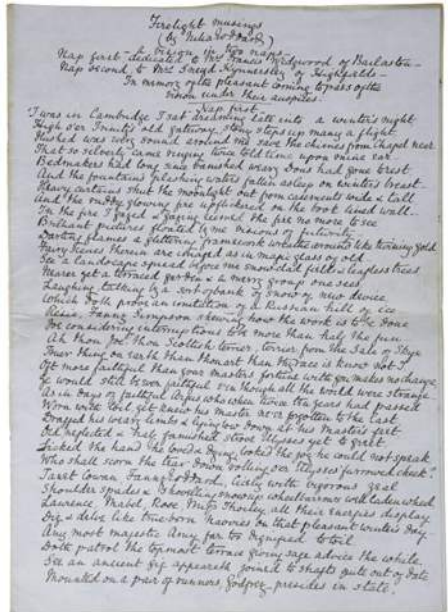 Firelight musings
(by Julia Goddard)
A vision in two naps—
Nap first—dedicated to Mrs Francis Wedgwood of Barlaston—
Nap second, to Mrs Sneyd Kynnersley of Highfields—
In memory of the pleasant coming to pass of the
vision under their auspices.
Nap first
'Twas in Cambridge I sat dreaming late into a winter's night
High o'er Trinity's old gateway, stony steps up many a flight
Hushed was every sound around me save the chimes from Chapel near
That so silvery came ringing twice told time upon mine ear.
Bedmakers had long since vanished weary Dons had gone to rest
And the fountain's plashing waters fallen asleep on winter's breast—
Heavy curtains shut the moonlight out from casements wide & tall
And the ruddy glowing fire upflickered on the book lined wall—
In the fire I gazed & gazing seemed the fire no more to see
Brilliant pictures floated by me visions of futurity
Darting flames a glittering framework wreathe around like burning gold
Fairy scenes therein are imaged as in magic glass of old
See a landscape spread before me snow clad fields & leafless trees
Nearer yet a terraced garden & a merry group one sees
Laughing talking by a sort of bank of snow of new device
Which doth prove an imitation of a Russian hill of ice
Fanny Simpson shewing how the work is to be done
Joe considering interruptions to be more than half the fun—
Ah thou Joe! thou Scottish terrier, terrier from the Isle of Skye
Truer thing on earth than thou art than thy race is know not I
Oft more faithful than your masters fortune with you makes no change
Ye would still be von faithful e'en though all the world were strange
As in days of faithful Argus who when twice ten years had passed
Worn with toil yet knew his master ne'er forgotten to the last
Dragged his weary limbs & laying low down at his Master's feet
Old neglected & half famished strove Ulysses yet to greet
Licked the hand he loved & dying looked the joy he could not speak
Who shall scorn the tear down rolling o'er Ulysses' furrowed cheek?
Janet Cowan, Fanny Goddard, Cicely with vigorous zeal
Shoulder spades & shovelling snow up wheelbarrows well laden wheel
Laurence, Mabel, Rose, Miss Thorley, all their energies display
Dig & delve like true-born Navvies on that pleasant winter's day.
Amy most majestic Amy far too dignified to toil
Doth patrol the topmost terrace giving sage advice the while.
See an ancient gig appeareth joined to shafts quite out of date
Mounted on a pair of runners, Godfrey presides in state.